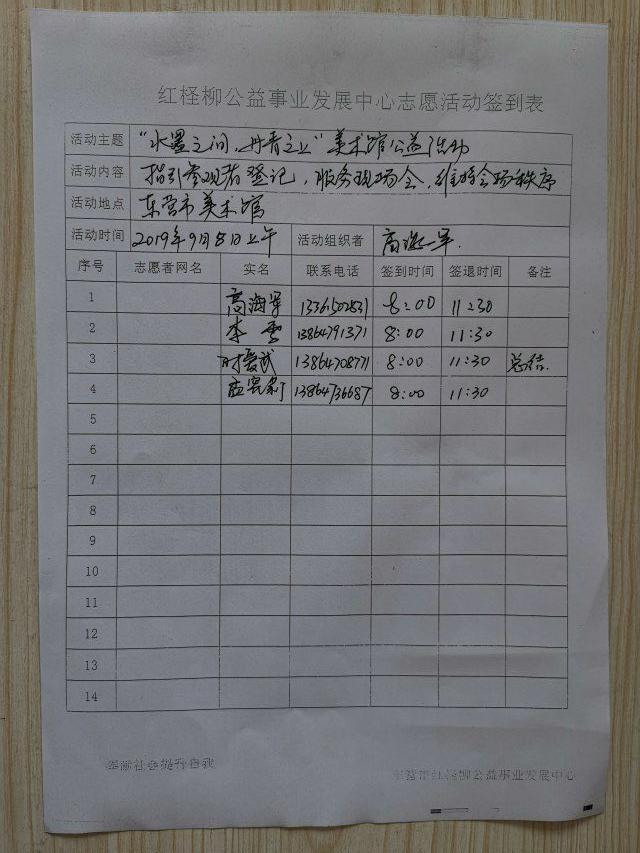 红柽柳公益事业发展中心志愿活动签到表
活动主题 "水墨之间,丹青之上"美术馆公益活动
活动内容 指引参观者登记,服务现场会,维持会场秩序
活动地点 东营市美术馆
活动时间 2019年9月8日上午 活动组织者 高海军.
序号 志愿者网名 实名 联系电话 签到时间 签退时间 备注
1 高海军 13361502831 8:00 11:30
2 李雪 13864791371 8:00 11:30
3 时爱武 13864708771 8:00 11:30 总结.
4 13864736687 8:00 11:30
5
6
7
8
9
10
11
12
13
14
奉献社会提升自我
东营市红柽柳公益事业发展中心